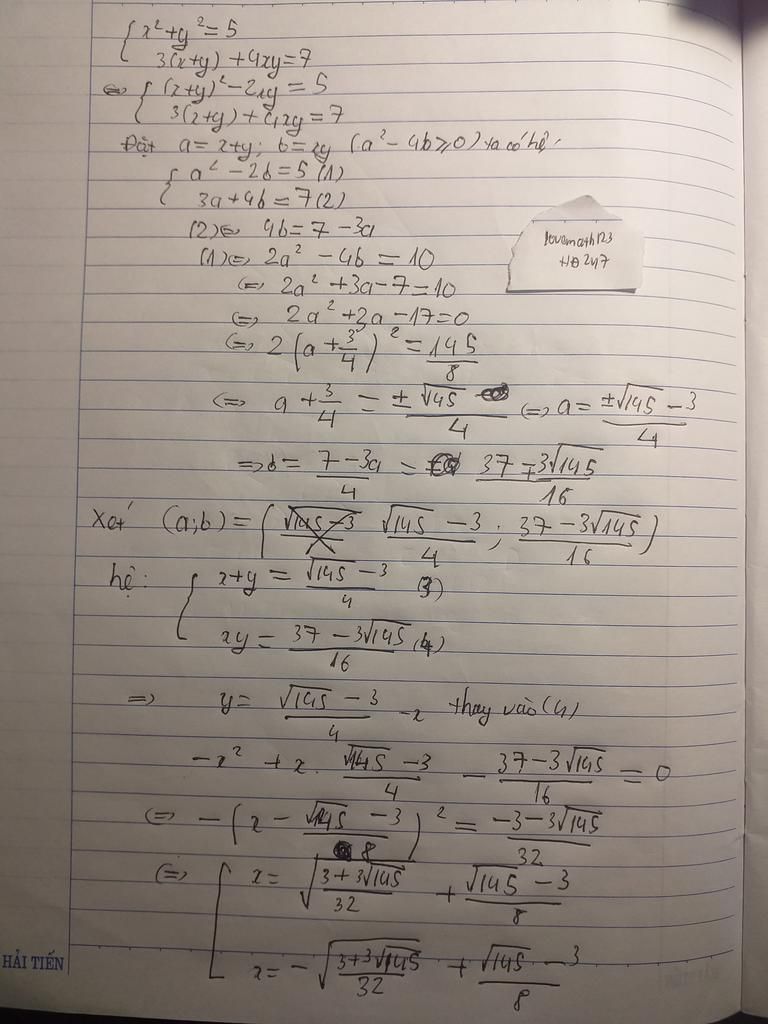 { x² + y² = 5
3(x+y) + 4xy = 7
⇔ { (x+y)² - 2xy = 5
3(x+y) + 4xy = 7
Đặt a = x+y; b = xy (a² - 4b ≥ 0) ta có hệ:
{ a² - 2b = 5 (1)
3a + 4b = 7 (2)
(2) ⇔ 4b = 7 - 3a
lovemath123
HĐ 247
(1) ⇔ 2a² - 4b = 10
⇔ 2a² + 3a - 7 = 10
⇔ 2a² + 3a - 17 = 0
⇔ 2(a + 3/4)² = 145/8
⇔ a + 3/4 = ±√145/4 ⇔ a = (±√145 - 3)/4
⇒ b = (7 - 3a)/4 = (37 ∓ 3√145)/16
Xét (a;b) = ( (√145 - 3)/4 ; (37 - 3√145)/16 )
hệ: { x+y = (√145 - 3)/4 (3)
xy = (37 - 3√145)/16 (4)
⇒ y = (√145 - 3)/4 - x thay vào (4)
-x² + x . (√145 - 3)/4 - (37 - 3√145)/16 = 0
⇔ -(x - (√145 - 3)/8)² = (-3 - 3√145)/32
⇔ [ x = √((3 + 3√145)/32) + (√145 - 3)/8
x = -√((3 + 3√145)/32) + (√145 - 3)/8
HẢI TIẾN